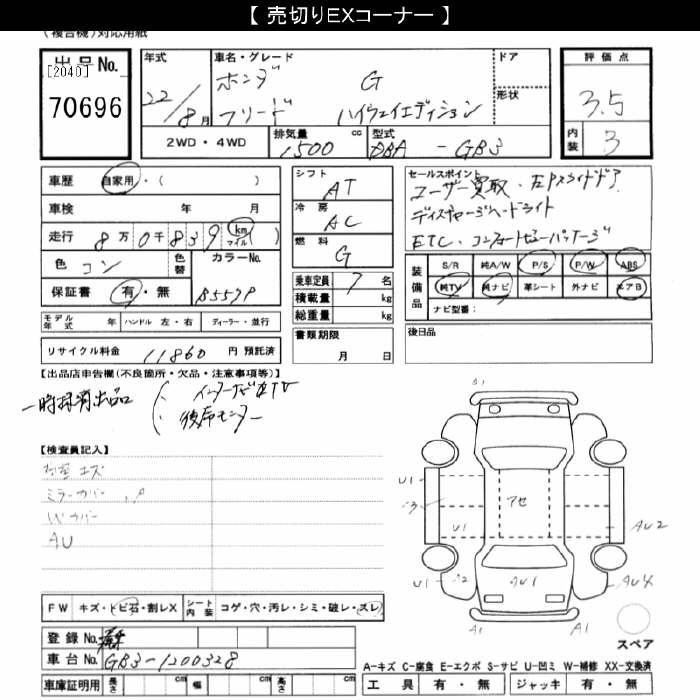 【 売切りEXコーナー 】
(複合機)対応用紙
出品No. [2040] 70696
年式 22/8月
車名・グレード ホンダ フリード G ハイウェイエディション
ドア
形状
評価点 3.5
内装 3
2WD・4WD 排気量 1500 cc 型式 DBA - GB3
車歴 自家用・( )
車検 年 月
走行 8万0千839 km マイル ( )
色 コン 色替 カラーNo. B557P
保証書 有・無
シフト AT
冷房 AC
燃料 G
乗車定員 7名
積載量 kg
総重量 kg
書類期限 月 日
セールスポイント
ユーザー買取・左Pスライドドア
ディスチャージヘッドライト
ETC・コンフォートビューパッケージ
装備品 S/R 純A/W P/S P/W ABS
純TV 純ナビ 革シート 外ナビ エアB
ナビ型番:
後日品
モデル年式 年 ハンドル 左・右 ディーラー・並行
リサイクル料金 11860 円 預託済
【出品店申告欄(不良箇所・欠品・注意事項等)】
一時抹消出品
【検査員記入】
ミラーカバー
AU
A1
U1 アセ
U1 AU2
U1 A2 AU1 AU4
A1 A1
スペア
FW キズ・トビ石・割レX シート内装 コゲ・穴・汚レ・シミ・破レ・スレ
登録No. 抹消
車台No. GB3-1200328
車庫証明用 長さ cm 幅 cm 高さ cm
A-キズ C-腐食 E-エクボ S-サビ U-凹ミ W-補修 XX-交換済
工具 有・無 ジャッキ 有・無